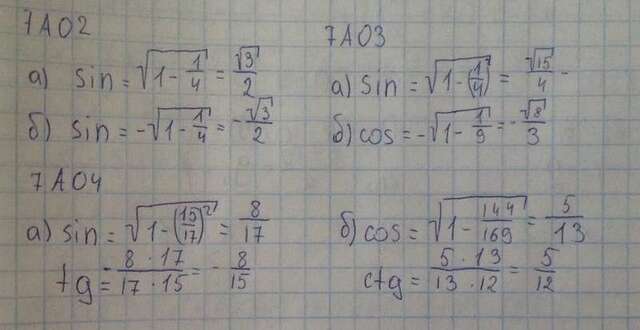 7A02
а) sin = √(1 - 1/4) = √3/2
б) sin = -√(1 - 1/4) = -√3/2
7A03
а) sin = √(1 - (1/4)²) = √15/4
б) cos = -√(1 - 1/9) = -√8/3
7A04
а) sin = √(1 - (15/17)²) = 8/17
tg = - (8 · 17)/(17 · 15) = - 8/15
б) cos = √(1 - 144/169) = 5/13
ctg = (5 · 13)/(13 · 12) = 5/12